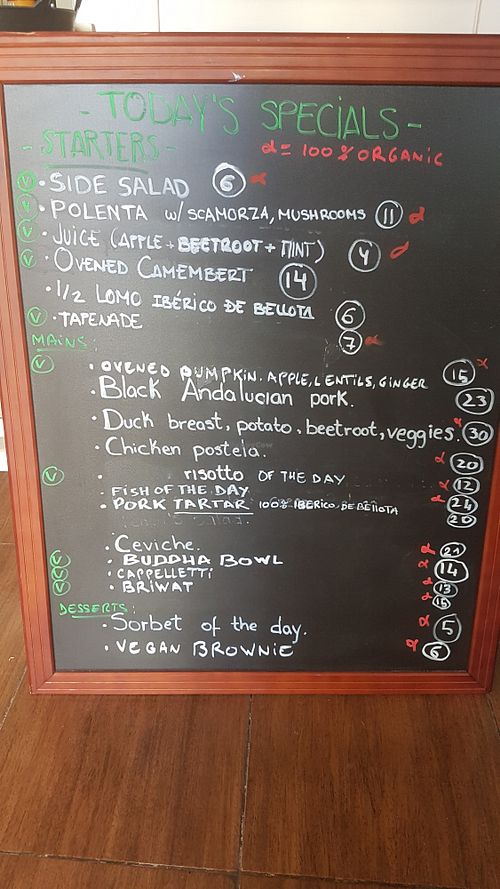 - TODAY'S SPECIALS -
- STARTERS -
α = 100% ORGANIC
V · SIDE SALAD 6 α
V · POLENTA w/ SCAMORZA, MUSHROOMS 11 α
V · JUICE (APPLE + BEETROOT + MINT) 4 α
V · OVENED CAMEMBERT 14
· 1/2 LOMO IBÉRICO DE BELLOTA 6
V · TAPENADE 7 α
MAINS:
V · OVENED PUMPKIN. APPLE, LENTILS, GINGER 15 α
· Black Andalucian pork. 23
· Duck breast, potato, beetroot, veggies. 30 α
· Chicken postela. 20 α
V · risotto OF THE DAY 12 α
· FISH OF THE DAY 24 α
· PORK TARTAR 100% IBERICO DE BELLOTA 20
· Ceviche. 21 α
V · BUDDHA BOWL 14 α
V · CAPPELLETTI 13 α
V · BRIWAT 15 α
DESSERTS:
· Sorbet of the day. 5 α
· VEGAN BROWNIE 6 α